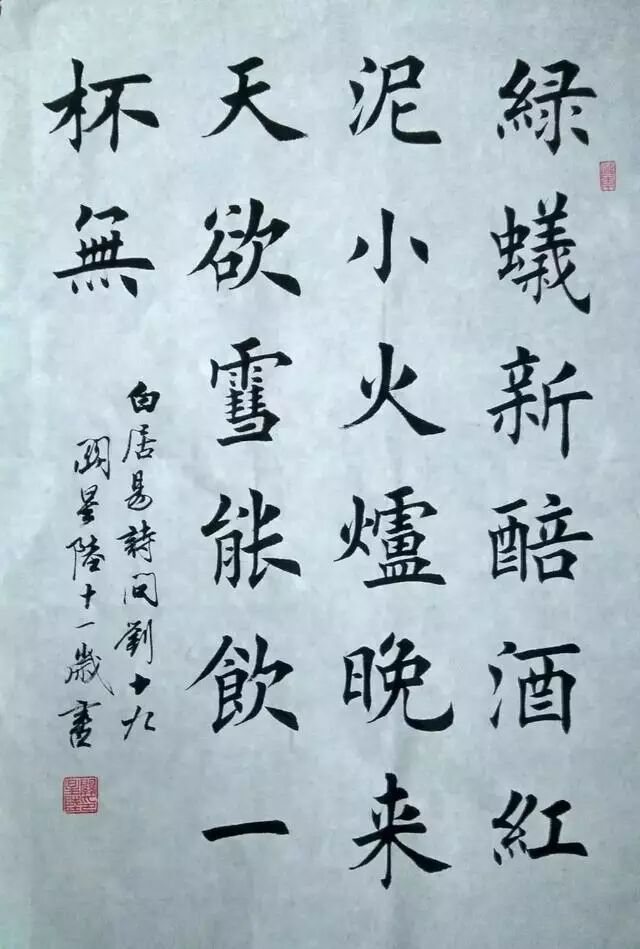 緑蟻新醅酒紅
泥小火爐晚来
天欲雪能飲一
杯無
白居易詩問劉十九
關星陸十一歲書